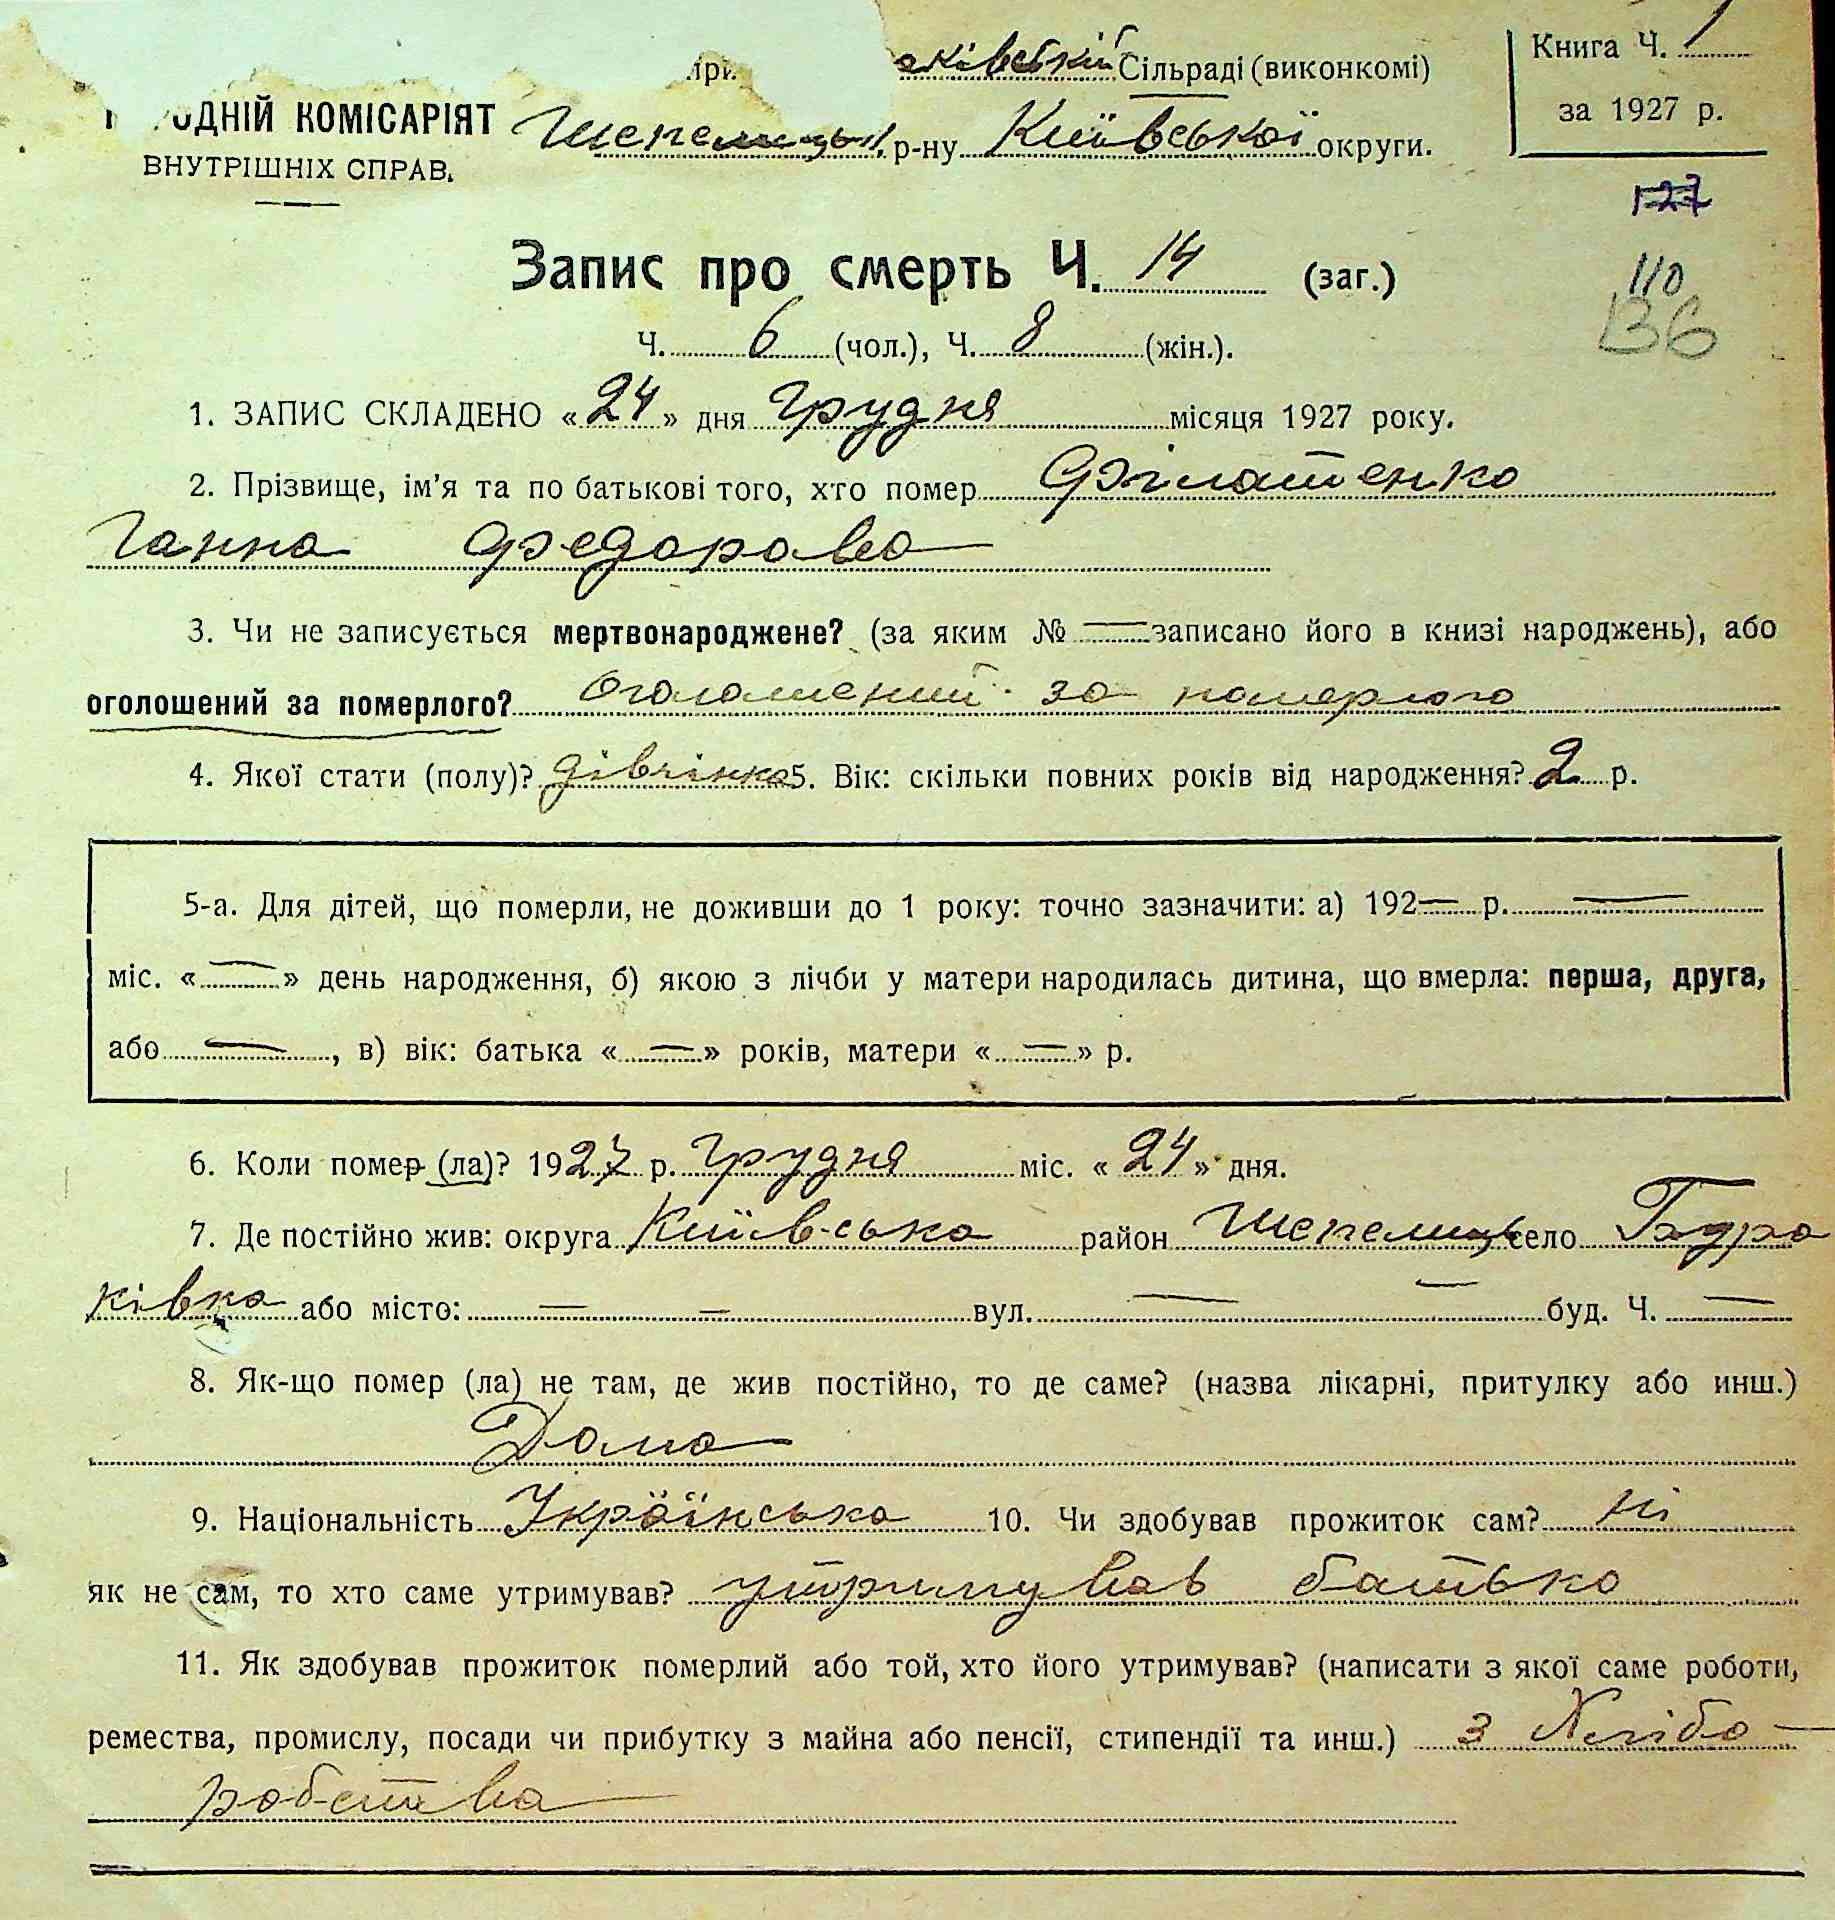 ківській Сільраді (виконкомі)
Книга Ч. 1
НІЙ КОМІСАРІЯТ
р-ну Київської округи.
за 1927 р.
ВНУТРІШНІХ СПРАВ.
127
Запис про смерть Ч. 14 (заг.)
110
Ч. 6 (чол.), Ч. 8 (жін.).
136
1. ЗАПИС СКЛАДЕНО « 24 » дня грудня місяця 1927 року.
2. Прізвище, ім'я та по батькові того, хто помер Філатенко
Ганна Федорова
3. Чи не записується мертвонароджене? (за яким № — записано його в книзі народжень), або
оголошений за померлого? Оголошений за померлого
4. Якої стати (полу)? дівчинка 5. Вік: скільки повних років від народження? 2 р.
5-а. Для дітей, що померли, не доживши до 1 року: точно зазначити: а) 192— р. —
міс. « — » день народження, б) якою з лічби у матери народилась дитина, що вмерла: перша, друга,
або — , в) вік: батька « — » років, матери « — » р.
6. Коли помер (ла)? 1927 р. грудня міс. « 24 » дня.
7. Де постійно жив: округа Київська район Шепелиць село
ківка або місто: — — вул. — — буд. Ч. —
8. Як-що помер (ла) не там, де жив постійно, то де саме? (назва лікарні, притулку або инш.)
Дома
9. Національність Українська 10. Чи здобував прожиток сам? Ні
як не сам, то хто саме утримував? утримував батько
11. Як здобував прожиток померлий або той, хто його утримував? (написати з якої саме роботи,
ремества, промислу, посади чи прибутку з майна або пенсії, стипендії та инш.) з Хлібо-
робства